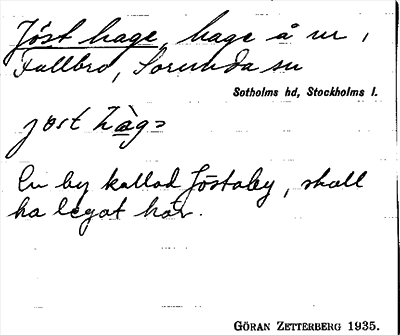 Jöst hage, hage å ur,
Fullbro, Sorunda sn
Sotholms hd, Stockholms l.
jøst hàgɜ
En by kallad Jöstaby, skall
ha legat här.
GÖRAN ZETTERBERG 1935.